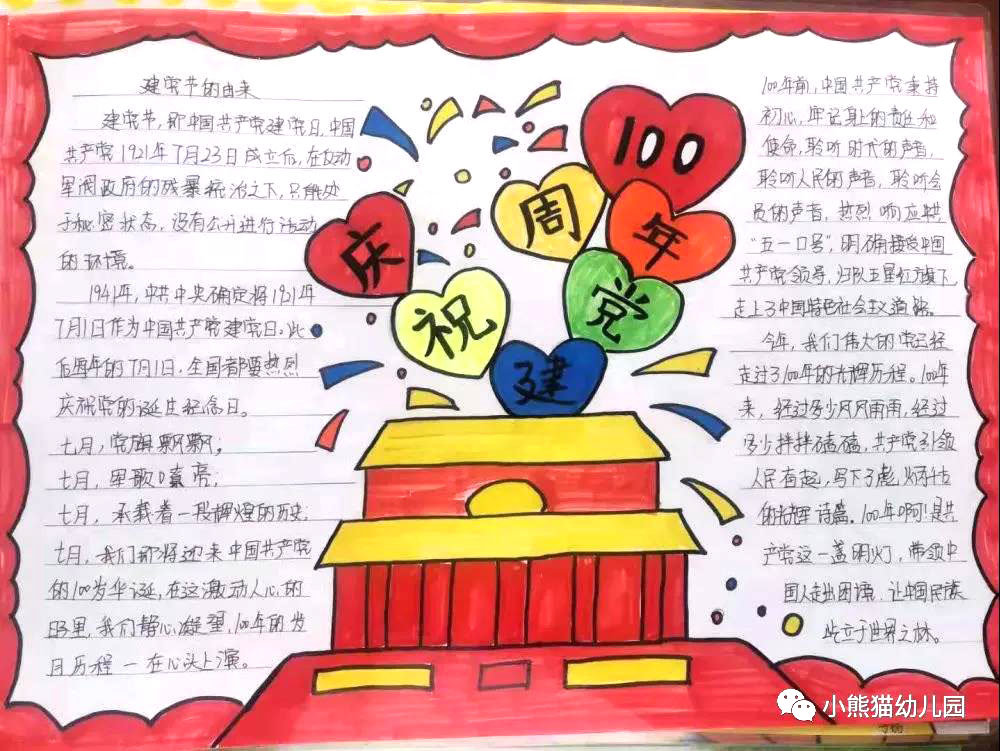 建党节的由来
建党节,新中国共产党建党日,中国
共产党1921年7月23日成立后,在反动
军阀政府的残暴统治之下,只能处
于秘密状态,没有公开进行活动
的环境。
1941年,中共中央确定将1921年
7月1日作为中国共产党建党日。此
后每年的7月1日,全国都要热烈
庆祝党的诞生纪念日。
七月,党旗飘飘。
七月,军歌嘹亮;
七月,承载着一段辉煌的历史;
七月,我们即将迎来中国共产党
的100岁华诞,在这激动人心的
日子里,我们静心凝望,100年的发
历程一一在心头上演。
100
庆
周
年
祝
党
建
100年前,中国共产党秉持
初心,牢记身上的责任和
使命,聆听时代的声音,
聆听人民的声音,聆听会
员的声音,热烈响应
“五一口号”,明确接受中国
共产党领导,归队五星红旗下,
走上了中国特色社会主义道路。
今年,我们伟大的党已经
走过了100年的光辉历程。100年
来,经过多少风风雨雨,经过
多少拌拌磕磕,共产党引领
人民奋起,写下了彪炳千古
的光辉诗篇。100年啊!是共
产党这一盏明灯,带领中
国人走出困境,让中国民族
屹立于世界之林。
小熊猫幼儿园